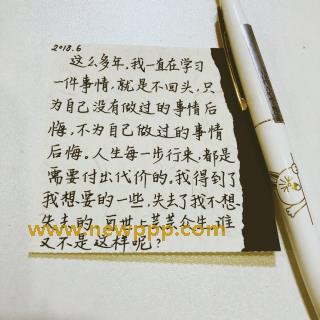 2018.6
这么多年,我一直在学习
一件事情,就是不回头,只
为自己没有做过的事情后
悔,不为自己做过的事情
后悔。人生每一步行来,都是
需要付出代价的,我得到了
我想要的一些,失去了我不想
失去的,可世上芸芸众生,谁
www.newppp.com
又不是这样呢?